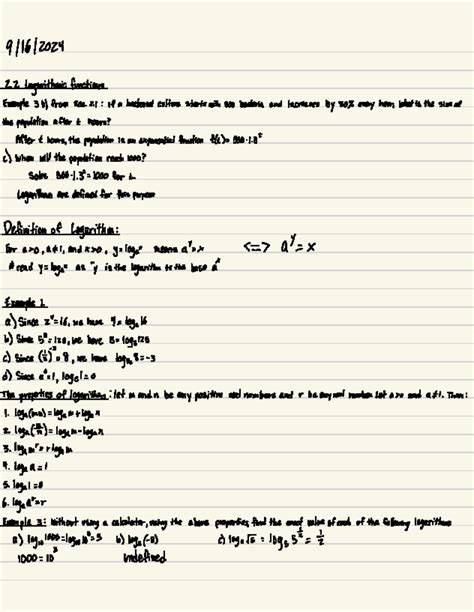 9/16/2024
2.2 Logarithmic functions
Example 3 b) from sec 2.1: if a bacterial culture starts with 300 bacteria and increases by 30% every hour, what is the size of
the population after t hours?
After t hours, the population is an exponential function f(t) = 300·1.3^t
c) When will the population reach 1000?
Solve 300·1.3^t = 1000 for t.
Logarithms are defined for this purpose
Definition of Logarithm:
For a>0, a≠1, and x>0, y=logₐx means a^y=x <=> a^y=x
# read y=logₐx as "y is the logarithm to the base a"
Example 1.
a) Since 2^4=16, we have 4=log₂16
b) Since 5^3=125, we have 3=log₅125
c) Since (1/2)^-3=8, we have log 8=-3
d) Since a^0=1, logₐ1=0
The properties of logarithms: let m and n be any positive real numbers and r be any real number. Let a>0 and a≠1. Then:
1. logₐ(mn)=logₐm+logₐn
2. logₐ(m/n)=logₐm-logₐn
3. logₐm^r=r logₐm
4. logₐa=1
5. logₐ1=0
6. logₐa^r=r
Example 3: Without using a calculator, using the above properties, find the exact value of each of the following logarithms
a) log₁₀1000=log₁₀10^3=3 b) log₂(-8) c) log₅√5 = log₅5^1/2 = 1/2
1000=10^3 undefined